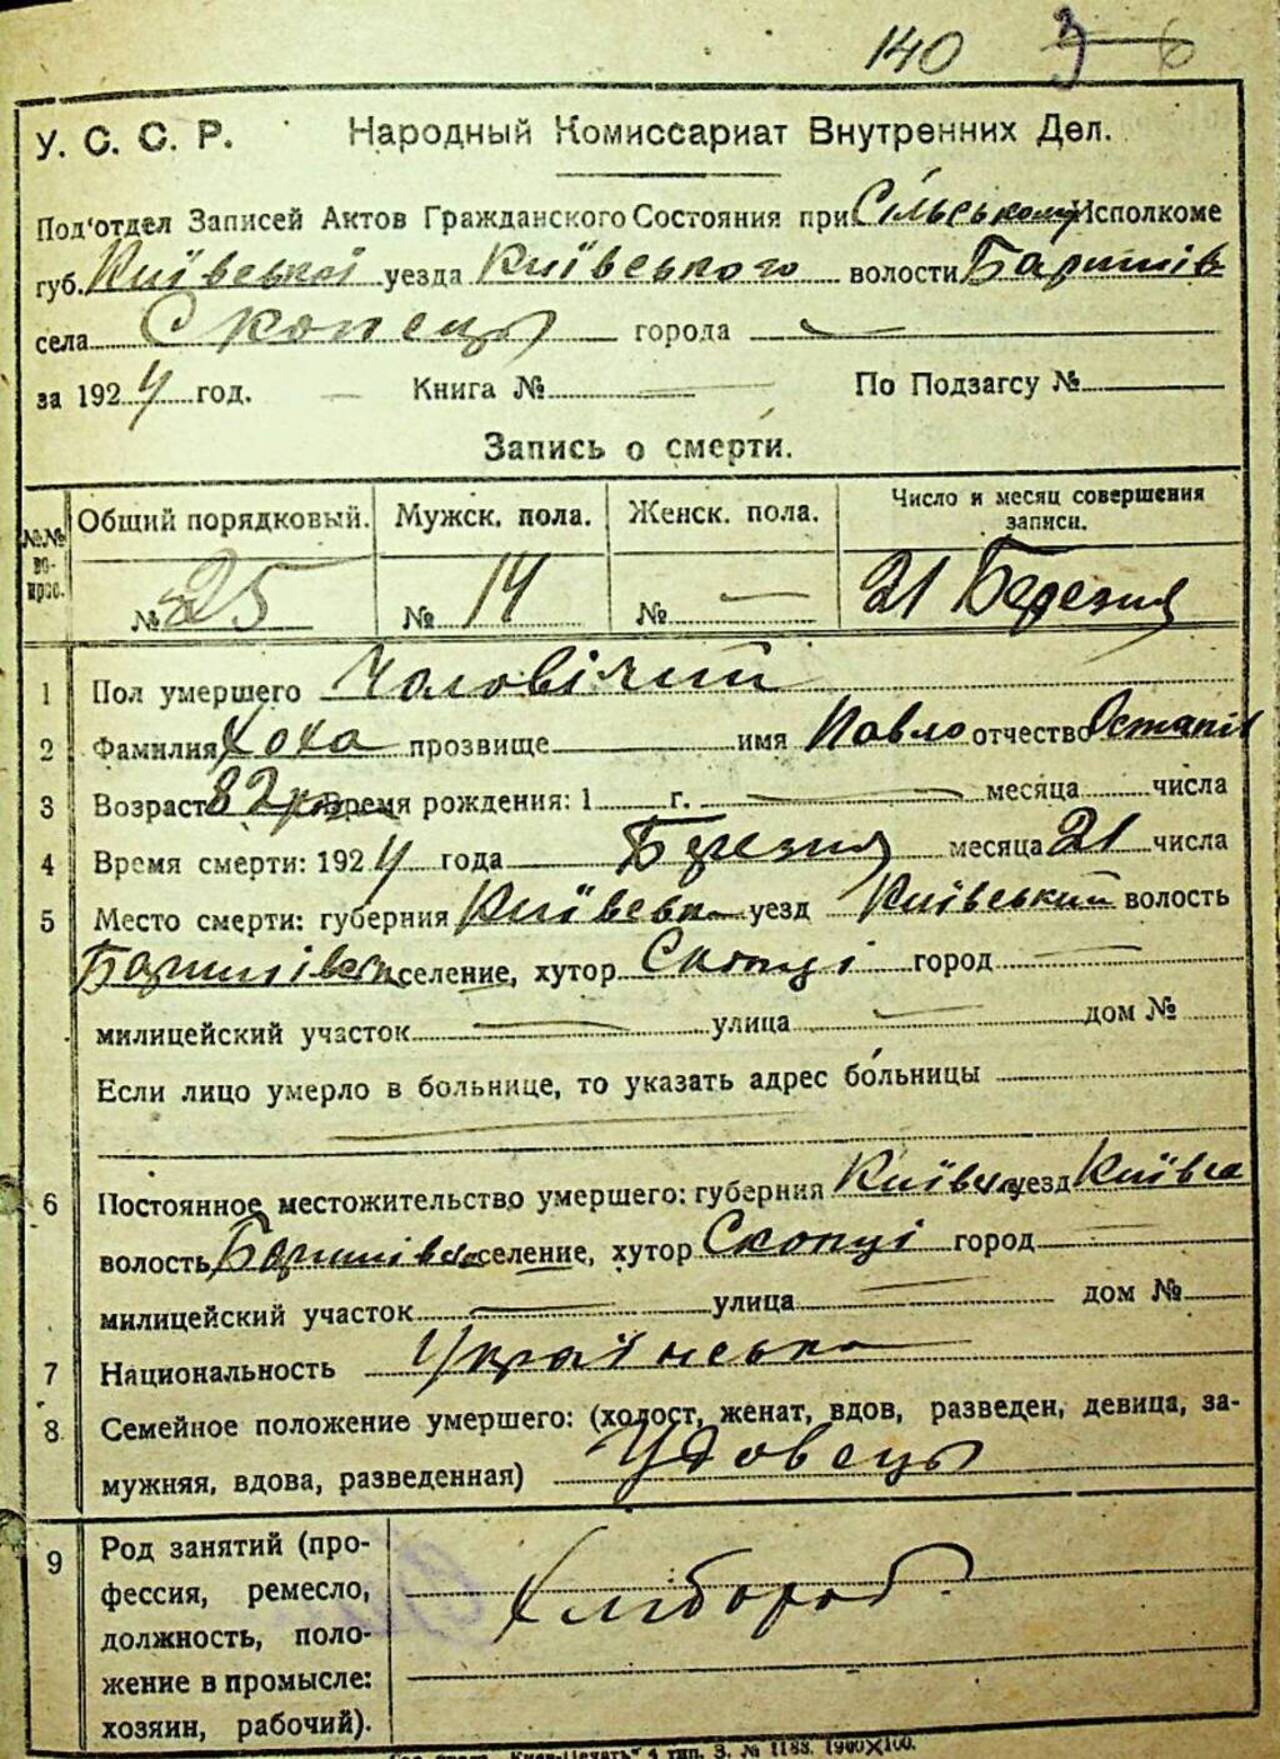 140 3 6
У. С. С. Р. Народный Комиссариат Внутренних Дел.
Под'отдел Записей Актов Гражданского Состояния при Сільському Исполкоме
губ. Київської уезда Київського волости Баришів
села Скопець города —
за 1924 год. — Книга № — По Подзагсу №
Запись о смерти.
№№ вопрос. Общий порядковый. Мужск. пола. Женск. пола. Число и месяц совершения записи.
№ 25 № 14 № — 21 Березня
1 Пол умершего Чоловічий
2 Фамилия Хоха прозвище имя Павло отчество Остапів
3 Возраст 82 время рождения: 1 г. — месяца числа
4 Время смерти: 1924 года Березня месяца 21 числа
5 Место смерти: губерния Київськ уезд Київський волость
Баришівськ селение, хутор Скопці город —
милицейский участок — улица — дом №
Если лицо умерло в больнице, то указать адрес больницы
6 Постоянное местожительство умершего: губерния Київськ уезд Київсь
волость Баришівськ селение, хутор Скопці город —
милицейский участок — улица — дом №
7 Национальность Українська
8 Семейное положение умершего: (холост, женат, вдов, разведен, девица, за-
мужняя, вдова, разведенная) Удовець
9 Род занятий (про-
фессия, ремесло,
должность, поло-
жение в промысле:
хозяин, рабочий).
Хлібороб.
"Киев-Печать" 4 тип. З. № 1188. 1900×100.